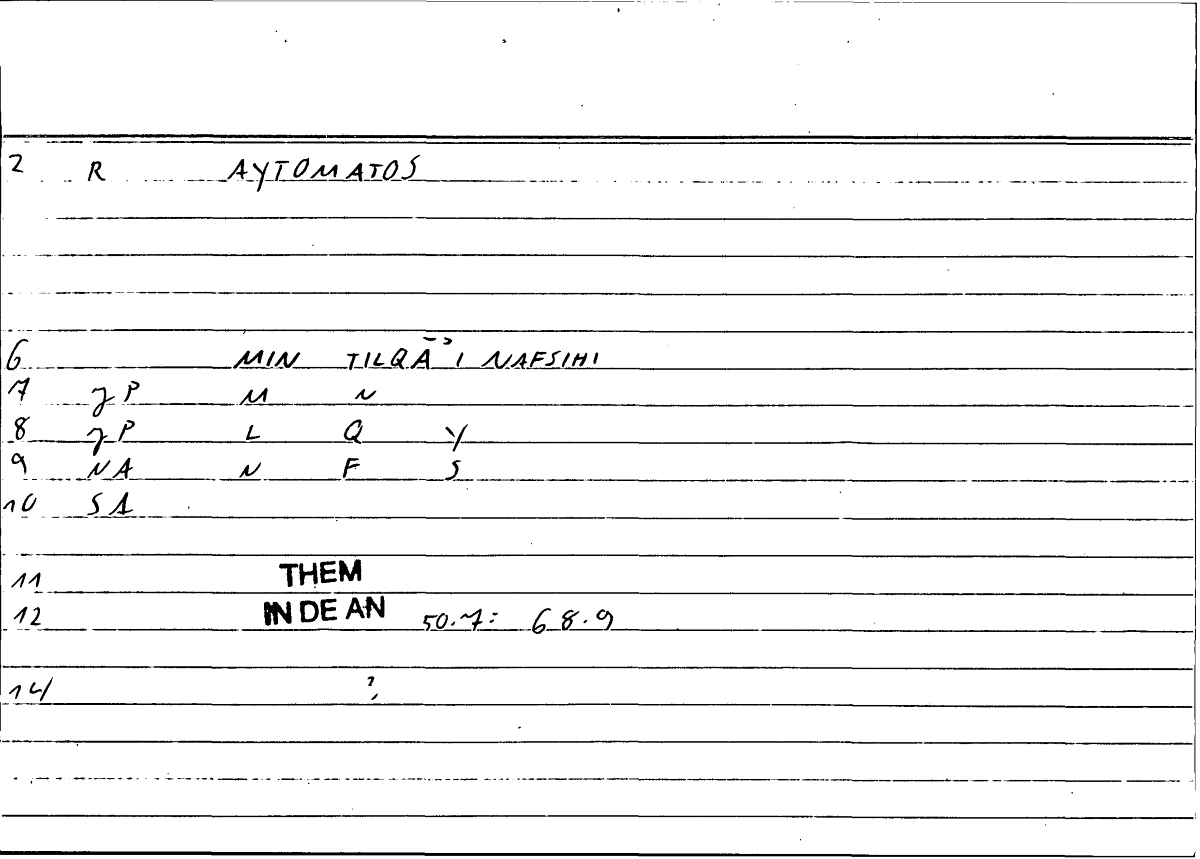 2 R AYTOMATOS
6 MIN TILQĀʾI NAFSIHI
7 γP M N
8 γP L Q Y
9 NA N F S
10 SA
11 THEM
12 IN DE AN 50.7: 68.9
14 ?